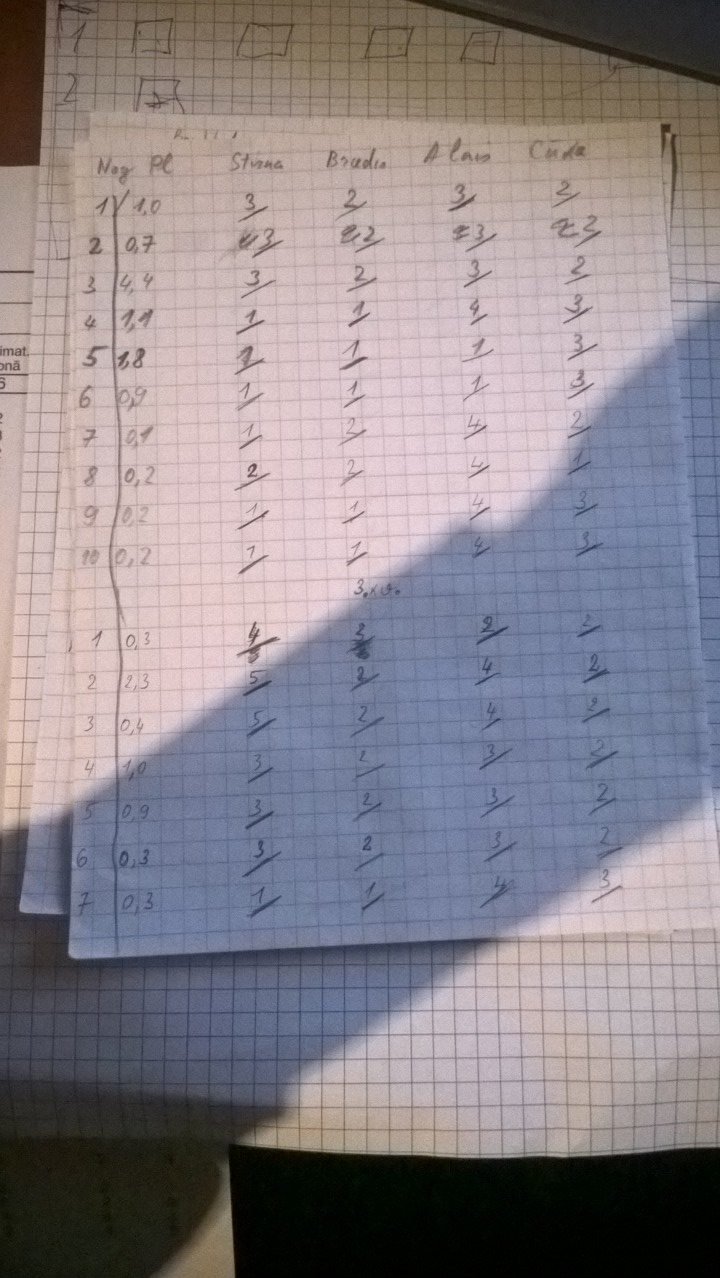 1
2
Nog Pl Stirna Briedis Alnis Cūka
1 1,0 3 2 3 2
2 0,7 3 2 3 3
3 4,4 3 2 3 2
4 1,1 1 1 4 3
5 1,8 1 1 1 3
6 0,9 1 1 1 3
7 0,1 1 2 4 2
8 0,2 2 2 4 1
9 0,2 1 1 4 3
10 0,2 1 1 4 3
3.kv.
1 0,3 4 2 2
2 2,3 5 2 4 2
3 0,4 5 2 4 2
4 1,0 3 2 3 2
5 0,9 3 2 3 2
6 0,3 3 2 3 2
7 0,3 1 1 4 3
imat.
onā
6